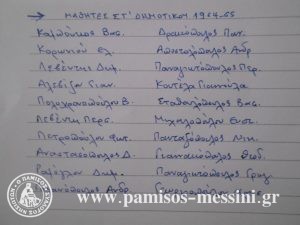 → ΜΑΘΗΤΕΣ ΣΤ' ΔΗΜΟΤΙΚΟΥ 1964-65
Βας. Δρακόπουλος Παν.
Κορωνιού Ελ. Αποστολόπουλος Ανδρ
Λεβέντης Δημ. Παναγιωτόπουλος Περ.
Αλεβίζου Γιαν. Κουτελα Γιαννούλα
Πολυχρονοπούλου Β. Σταθουλόπουλος Βας.
Λεβέντη Περς. Μιχαλοπούλου Ευστ.
Πετροπούλου Φωτ. Πανταζόπουλος Νικ.
Αναστασόπουλος Δ. Γιαννακόπουλος Θεοδ.
Δημ. Παναγιωτόπουλος Γρηγ
Ανδρ.
www.pamisos-messini.gr